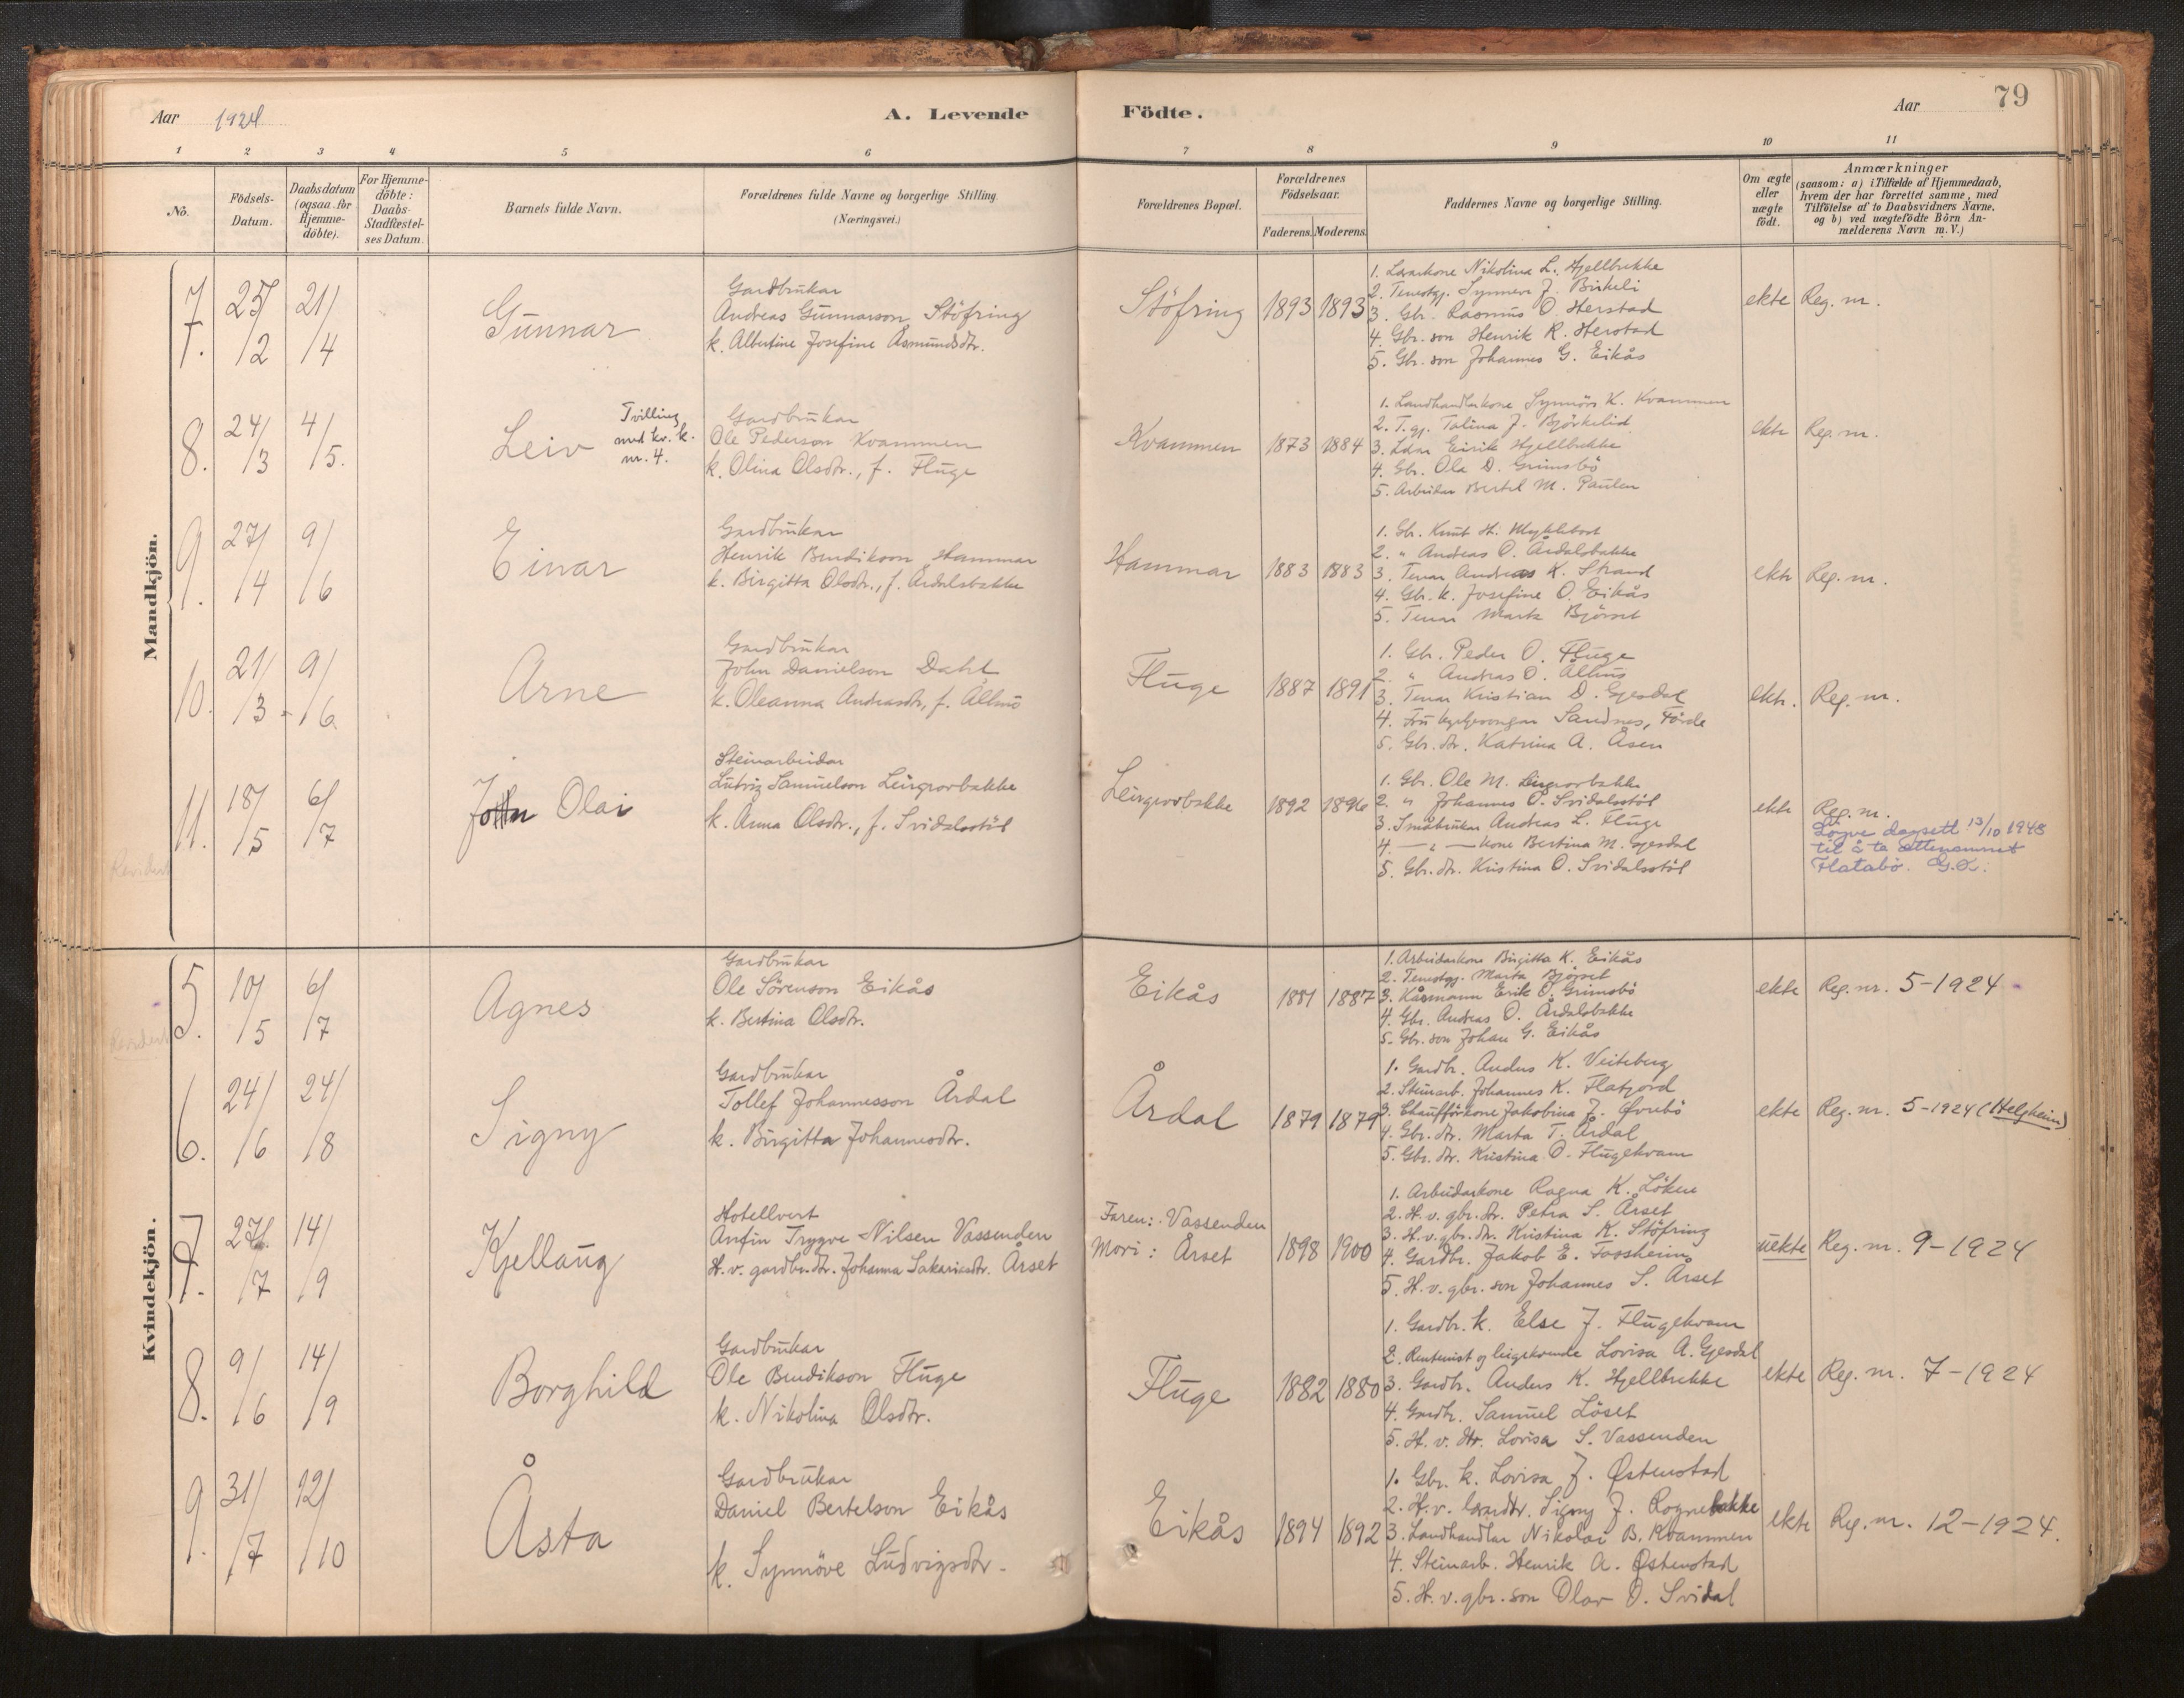 79
Aar 1924
A. Levende Födte.
Aar
1 2 3 4 5 6 7 8 9 10 11
No.
Födsels-Datum.
Daabsdatum (ogsaa for Hjemme-döbte).
For Hjemme-döbte: Daabs-Stadfæstel-ses Datum.
Barnets fulde Navn.
Forældrenes fulde Navne og borgerlige Stilling
(Næringsvei.)
Forældrenes Bopæl.
Forældrenes Födselsaar.
Faderens. Moderens.
Faddernes Navne og borgerlige Stilling.
Om ægte eller uægte födt.
Anmærkninger
(saasom: a) i Tilfælde af Hjemmedaab,
hvem der har forrettet samme, med
Tilföielse af to Daabsvidners Navne,
og b) ved uægtefödte Börn An-
melderens Navn m. V.)
Mandkjön.
7. 25/2 21/4 Gunnar
Gardbrukar
Andreas Gunnarson Stöfring
k. Albertine Josefine Åsmundsdtr.
Stöfring 1893 1893
1. Lærarkone Nikolina L. Hjellbrekke
2. Tenestgj. Synneve J. Birkeli
3. Gbr. Rasmus O. Herstad
4. Gbr. son Henrik R. Herstad
5. Gbr. son Johannes G. Eikås
ekte Reg. nr.
8. 24/3 4/5. Leiv
Tvilling
med kv. k.
nr. 4.
Gardbrukar
Ole Pederson Kvammen
k. Olina Olsdtr., f. Fluge
Kvammen 1873 1884
1. Landhandlarkone Synnöve K. Kvammen
2. T.gj. Talina J. Björkelid
3. Ldm Eirik Hjellbrekke
4. Gbr. Ola D. Grimsbö
5. Arbeidar Bertel M. Paulen
ekte Reg. nr.
9. 27/4 9/6 Einar
Gardbrukar
Henrik Bendikson Hammar
k. Birgitta Olsdtr., f. Årdalsbakke
Hammar 1883 1883
1. Gbr. Knut H. Myklebost
2. " Andreas O. Årdalsbakke
3. Tenar Andreas K. Strand
4. Gbr. k. Josefine O. Eikås
5. Tenar Marta Björset
ekte Reg. nr.
10. 21/3 9/6. Arne
Gardbrukar
John Danielson Dahl
k. Oleanna Andreasdtr, f. Ålhus
Fluge 1887 1891
1. Gbr. Peder O. Fluge
2. " Andreas O. Ålhus
3. Tenar Kristian D. Gjesdal
4. Fru Sandnes, Förde
5. Gbr. dtr. Katrina A. Åsen
ekte. Reg. nr.
11. 18/5 6/7 John Olai
Steinarbeidar
Ludvig Samuelson Leirgrovbakke
k. Anna Olsdtr., f. Svidalsstöl
Leirgrovbakke 1892 1896
1. Gbr. Ole M. Leirgrovbakke
2. " Johannes O. Svidalsstöl
3. Småbrukar Andreas L. Fluge
4. — " — kone Bertina M. Gjesdal
5. Gbr. dtr. Kristina O. Svidalsstöl
ekte Reg. nr.
Löyve dagsett 13/10 1948
til å ta ættenamnet
Flatabö. G.K.
Revidert
Kvindekjön.
5. 10/5 6/7 Agnes
Gardbrukar
Ole Sörenson Eikås
k. Bertina Olsdtr.
Eikås 1881 1887
1. Arbeidarkone Birgitta K. Eikås
2. Tenestgj. Marta Björset
3. Kårmann Erik O. Grimsbö
4. Gbr. Andreas O. Årdalsbakke
5. Gbr. son Johan G. Eikås
ekte Reg. nr. 5-1924
Revidert
6. 24/6 24/8 Signy
Gardbrukar
Tollef Johannesson Årdal
k. Birgitta Johannesdtr.
Årdal 1879 1879
1. Gardb. Anders K. Veiteberg
2. Steinarb. Johannes K. Flatjord
3. Chaufförkone Jakobina J. Øvrebö
4. Gbr. dtr. Marta T. Årdal
5. Gbr. dtr. Kristina O. Flugekvam
ekte Reg. nr. 5-1924 (Helgheim)
7. 27/7 14/9 Kjellaug
Hotellvert
Anfin Trygve Nilsen Vassenden
H. v. gardbr. dtr. Johanna Sakariasdtr. Årset
Faren: Vassenden
Mori: Årset
1898 1900
1. Arbeidarkone Ragna K. Löken
2. H. v. gbr. dtr. Petra S. Årset
3. H. v. gbr. dtr. Kristina K. Stöfring
4. Gardbr. Jakob E. Fossheim
5. H. v. gbr. son Johannes S. Årset
uekte Reg. nr. 9-1924
8. 9/6 14/9 Borghild
Gardbrukar
Ole Bendikson Fluge
k. Nikolina Olsdtr.
Fluge 1882 1880
1. Gardbr. k. Else J. Flugekvam
2. Rentenist og leigekvende Lovisa A. Gjesdal
3. Gardbr. Anders K. Hjellbrekke
4. Gardbr. Samuel Löset
5. H. v. dtr. Lovisa S. Vassenden
ekte Reg. nr. 7-1924
9. 31/7 12/10 Åsta
Gardbrukar
Daniel Bertelson Eikås
k. Synnöve Ludvigsdtr.
Eikås 1894 1892
1. Gbr. k. Lovisa J. Østenstad
2. H. v. lærardtr. Signy J. Rognebakke
3. Landhandlar Nikolai B. Kvammen
4. Steinarb. Henrik A. Østenstad
5. H. v. gbr. son Olav O. Svidal
ekte Reg. nr. 12-1924.